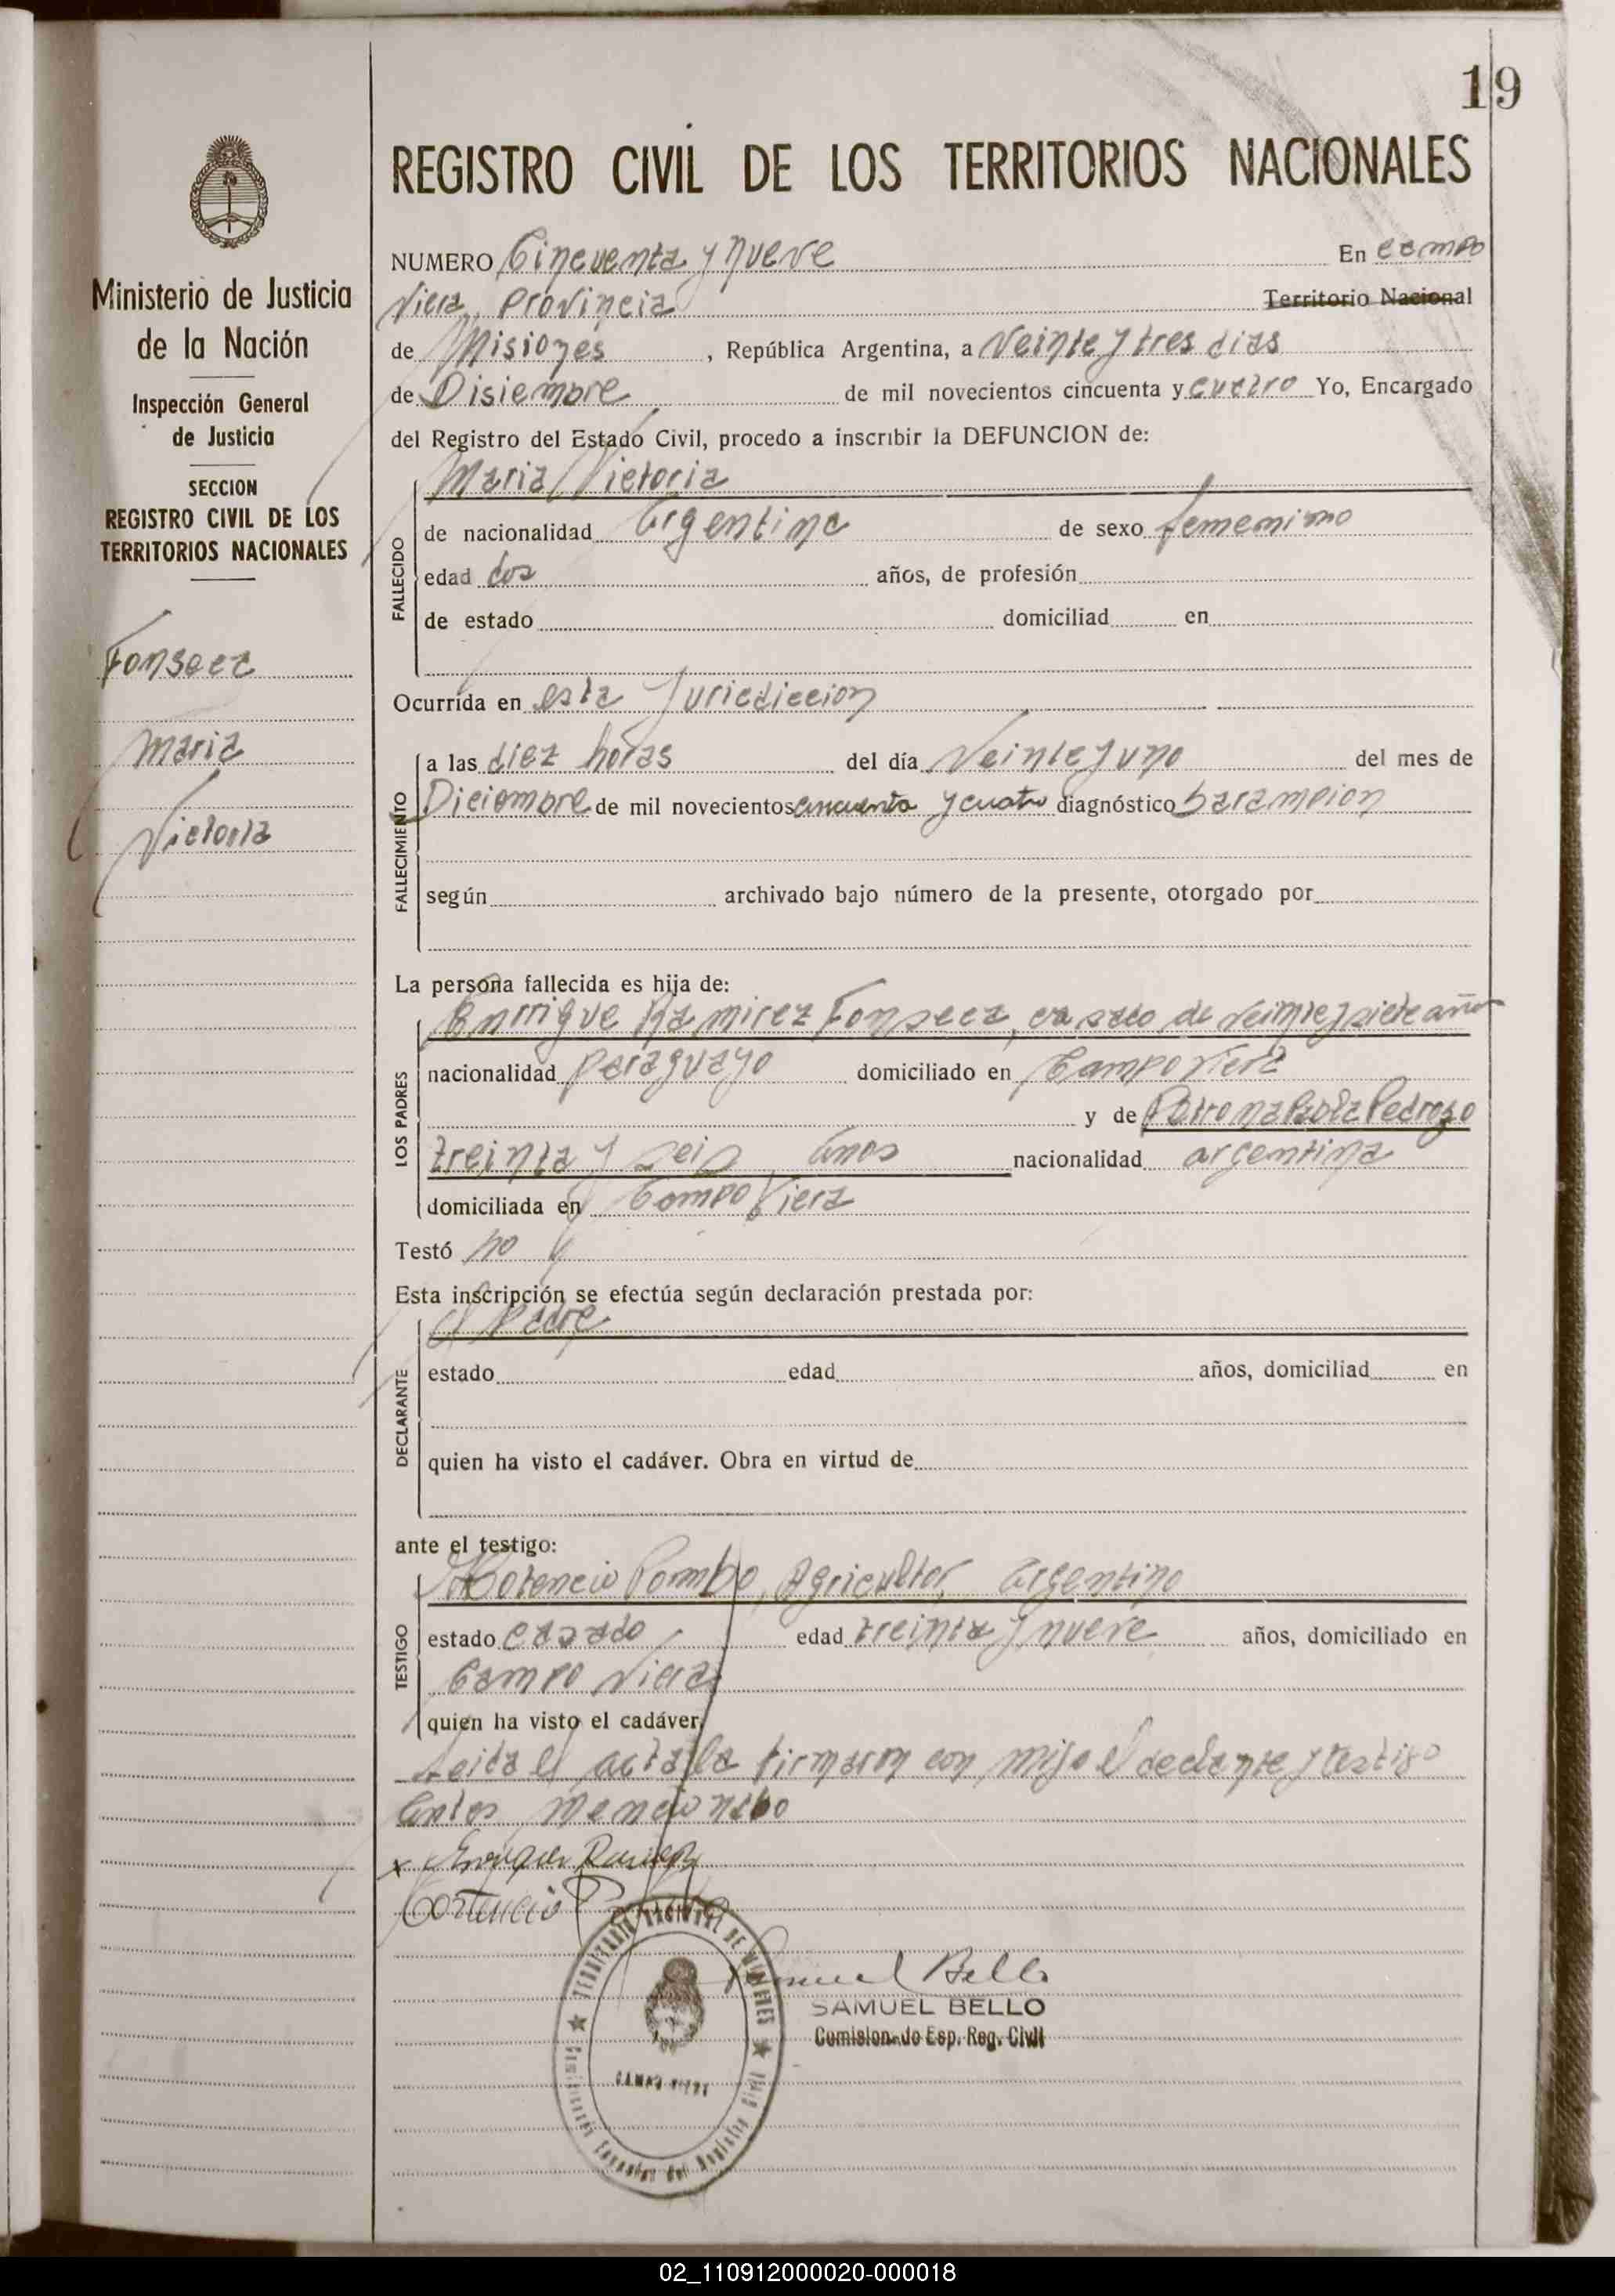 19
REGISTRO CIVIL DE LOS TERRITORIOS NACIONALES
Ministerio de Justicia
de la Nación
Inspección General
de Justicia
SECCION
REGISTRO CIVIL DE LOS
TERRITORIOS NACIONALES
Fonseca
Maria
Victoria
NUMERO Cincuenta y nueve En campo
Viera, Provincia Territorio Nacional
de Misiones, República Argentina, a Veinte y tres dias
de Disiembre de mil novecientos cincuenta y cuatro Yo, Encargado
del Registro del Estado Civil, procedo a inscribir la DEFUNCION de:
Maria Victoria
FALLECIDO
de nacionalidad Argentina de sexo femenimo
edad dos años, de profesión
de estado domiciliad en
Ocurrida en esta Juricdiccion
FALLECIMIENTO
a las diez horas del día Veinte y uno del mes de
Diciembre de mil novecientos cincuenta y cuatro diagnóstico barampion
según archivado bajo número de la presente, otorgado por
La persona fallecida es hija de:
LOS PADRES
Enrrique Ramirez Fonseca, casado de veinte y siete años
nacionalidad paraguayo domiciliado en Campo Viera
y de Petrona Pabla Pedrozo
treinta y seis, anos nacionalidad argentina
domiciliada en Campo Viera
Testó no
Esta inscripción se efectúa según declaración prestada por:
DECLARANTE
el Padre
estado edad años, domiciliad en
quien ha visto el cadáver. Obra en virtud de
ante el testigo:
TESTIGO
Hotencio Pombo, Agricultor, argentino
estado casado, edad treinta y nueve años, domiciliado en
Campo Viera
quien ha visto el cadáver,
Leida el acta la firmaron con migo el declante y testigo
antes mencionado
x Enrique Ramirez
Hortencio
TERRITORIO NACIONAL DE MISIONES
CAMPO VIERA
Samuel Bello
SAMUEL BELLO
Comisionado Esp. Reg. Civil
02_110912000020-000018